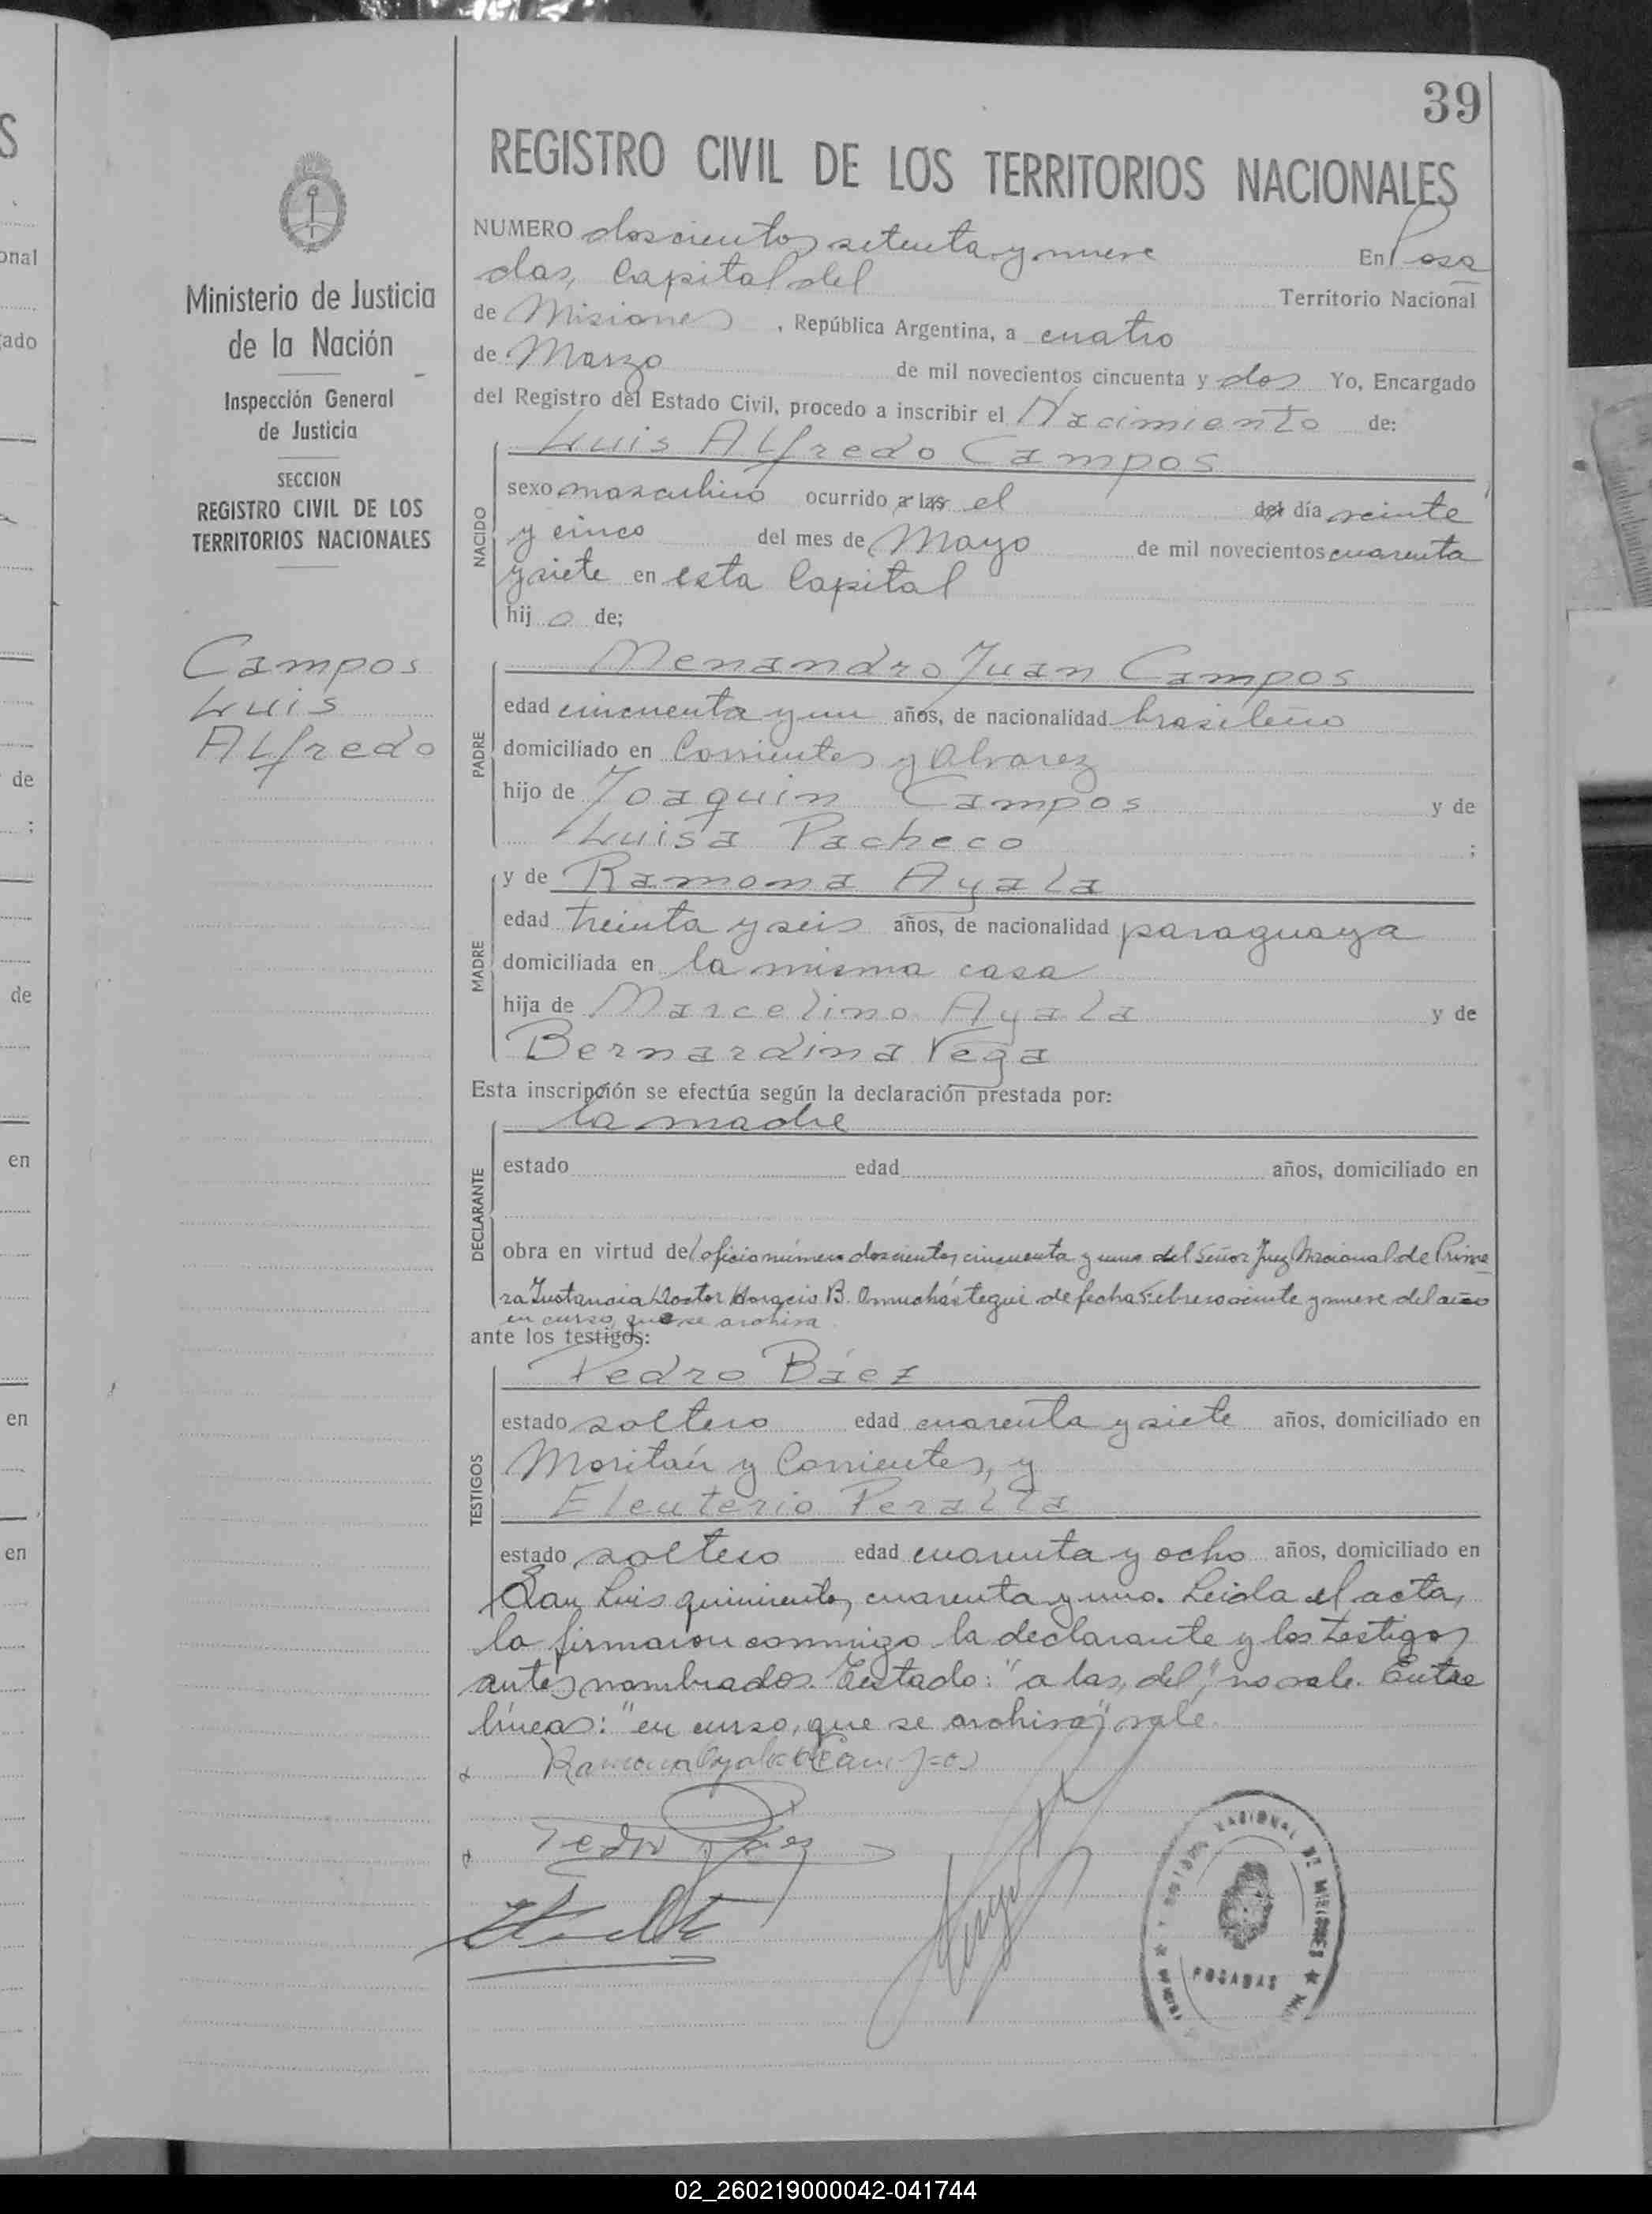 39
REGISTRO CIVIL DE LOS TERRITORIOS NACIONALES
NUMERO doscientos setenta y nueve En Posa
das, Capital del Territorio Nacional
de Misiones, República Argentina, a cuatro
de Marzo de mil novecientos cincuenta y dos Yo, Encargado
del Registro del Estado Civil, procedo a inscribir el Nacimiento de:
Luis Alfredo Campos
sexo masculino ocurrido a las el del día veinte
y cinco del mes de Mayo de mil novecientos cuarenta
y siete en esta Capital
hijo de;
NACIDO
Menandro Juan Campos
edad cincuenta y un años, de nacionalidad brasileño
domiciliado en Corrientes y Alvarez
hijo de Joaquin Campos y de
Luisa Pacheco ;
PADRE
y de Ramona Ayala
edad treinta y seis años, de nacionalidad paraguaya
domiciliada en la misma casa
hija de Marcelino Ayala y de
Bernardina Vega
MADRE
Esta inscripción se efectúa según la declaración prestada por:
la madre
estado edad años, domiciliado en
DECLARANTE
obra en virtud del oficio número doscientos cincuenta y uno del Señor Juez Nacional de Prime
ra Instancia Doctor Horacio B. de fecha Febrero veinte y nueve del año
en curso, que se archiva
ante los testigos:
Pedro Báez
estado soltero edad cuarenta y siete años, domiciliado en
y Corrientes, y
Eleuterio Peralta
TESTIGOS
estado soltero edad cuarenta y ocho años, domiciliado en
San Luis quinientos cuarenta y uno. Leida el acta,
la firmaron conmigo la declarante y los testigos
antes nombrados. Testado: "a las, del", no vale. Entre
líneas: "en curso, que se archiva", vale.
Ramona Ayala de Campos
Pedro Báez
POSADAS
Ministerio de Justicia
de la Nación
Inspección General
de Justicia
SECCION
REGISTRO CIVIL DE LOS
TERRITORIOS NACIONALES
Campos
Luis
Alfredo
02_260219000042-041744